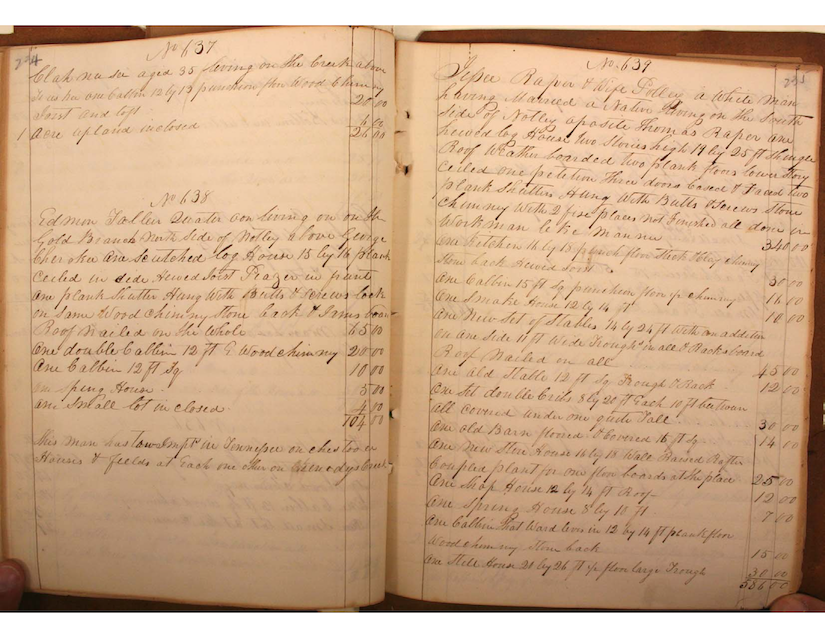 254
No 637
aged 35 living on the Creek above
one Cabbin 12 by 13 puncheon floor Wood Chimny
Joist and loft 20 00
1 Acre upland inclosed 4 00
26 00
No 638
Edmon Quater Con living on on the
Gold Branch North Side of Notley above George
Cherokee One Scutched log House 18 by 16 plank
Ceiled in side Hewed Joist in frunt
one plank Shutter Hung With Butts & Screws lock
on Same Wood Chimny Stone back & Jams
Roof Nailed on the Whole 65 00
One double Cabbin 12 ft & Wood chimny 20 00
One Cabbin 12 ft Sq 10 00
one Spring House 5 00
one Small lot in closed 4 00
104 00
This Man has tow Impts in Tennessee on
Houses & fields at Each one other on Creek
255
No. 639
Jesse Raper & Wife Polley a White Man
having Married a Native living on the South
Side of Notley aposite Thomas Raper one
hewed log House two Stories high 19 by 25 ft Shingle
Roof Weather boarded two plank floors lower Story
ceiled one petetion three doors Cased & Faced two
plank Shutters Hung With Butts & Screws Stone
Chimny With 2 fire places not Finished all done in
Workman like Manner 340 00
one Kitchen 16 by 13 puncheon floor Stick & Clay chimny
Stone back Hewed Joist 30 00
One Cabbin 15 ft Sq puncheon floor chimny 16 00
One Smoke House 12 by 14 ft 10 00
One New Set of Stables 14 by 24 ft With an addition
on one Side 11 ft Wide Troughs in all & Racks aboard
Roof Nailed on all 45 00
One old Stable 12 ft Sq Trough & Rack 12 00
One Set double Cribs 8 by 20 ft Each 10 ft between
all Covered under one quite Tall 30 00
One old Barn floored & Covered 16 ft Sq 14 00
One New Stone House 16 by 18 Wall Raised Rafters
Coupled plank for one floor boards at the place 25 00
One Shop House 12 by 14 ft Roof 12 00
One Spring House 8 by 10 ft 7 00
One Cabbin that Ward lives in 12 by 14 ft plank floor
Wood chimny Stone back 15 00
One Still House 21 by 26 ft floor large Trough 30 00
586 00